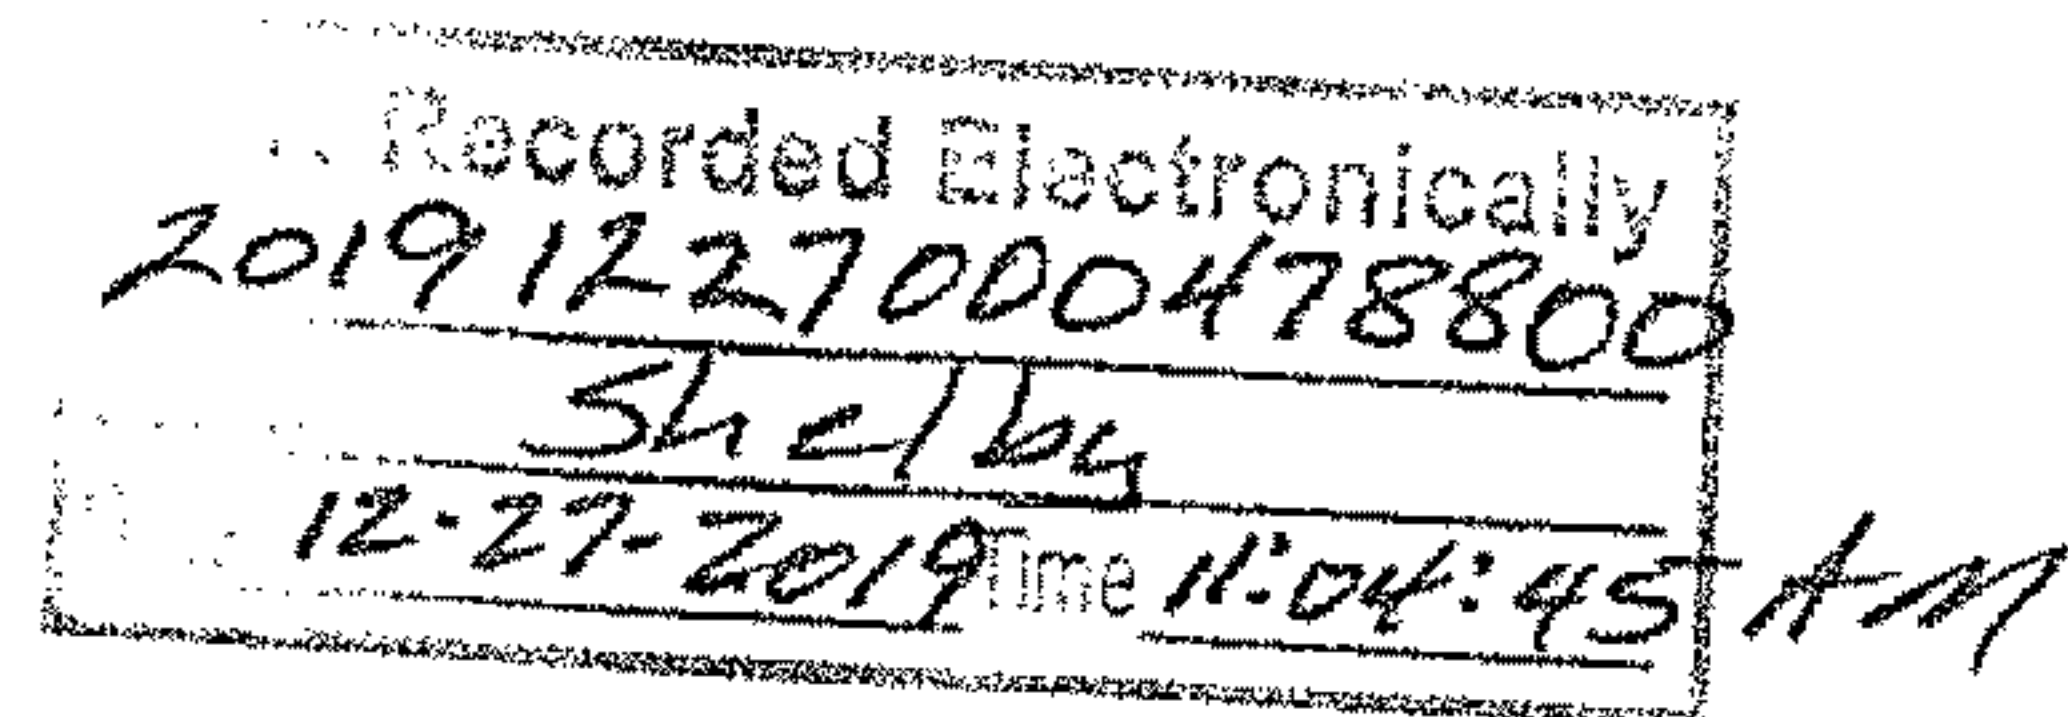 Recorded Electronically
20191227000478800
Shelby
12-27-2019 Time 11:04:45 AM